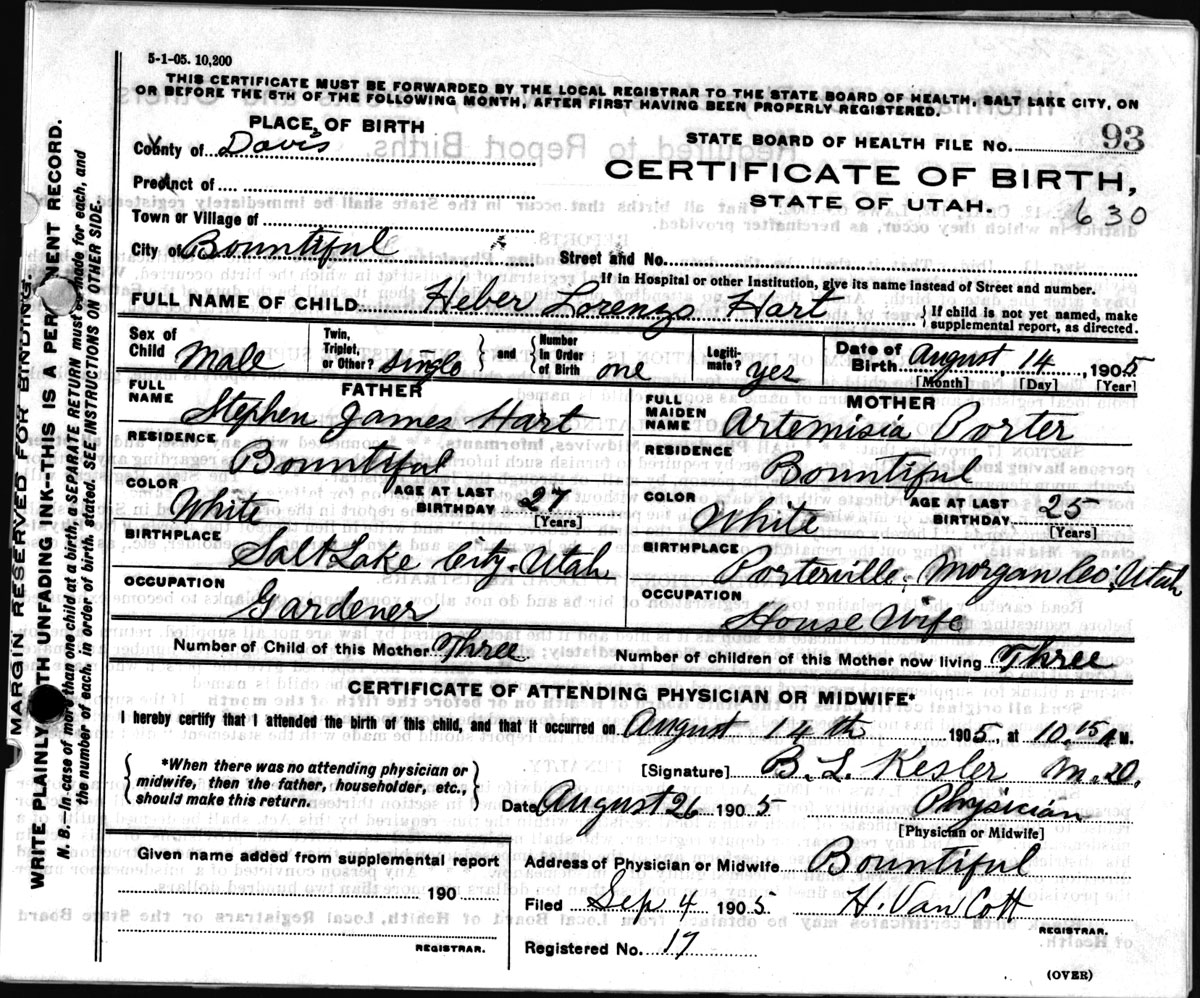 5-1-05. 10,200
THIS CERTIFICATE MUST BE FORWARDED BY THE LOCAL REGISTRAR TO THE STATE BOARD OF HEALTH, SALT LAKE CITY, ON
OR BEFORE THE 5TH OF THE FOLLOWING MONTH, AFTER FIRST HAVING BEEN PROPERLY REGISTERED.
PLACE OF BIRTH
STATE BOARD OF HEALTH FILE NO. 93
County of Davis
CERTIFICATE OF BIRTH,
Precinct of
STATE OF UTAH. 630
Town or Village of
City of Bountiful
Street and No.
If in Hospital or other Institution, give its name instead of Street and number.
FULL NAME OF CHILD Heber Lorenzo Hart { If child is not yet named, make supplemental report, as directed.
Sex of Child Male Twin, Triplet, or Other? single } and { Number In Order of Birth one Legiti-mate? yes Date of Birth August 14, 1905
[Month] [Day] [Year]
FATHER
FULL NAME Stephen James Hart
RESIDENCE Bountiful
COLOR White AGE AT LAST BIRTHDAY 27
[Years]
BIRTHPLACE Salt Lake City. Utah
OCCUPATION Gardener
MOTHER
FULL MAIDEN NAME Artemisia Porter
RESIDENCE Bountiful
COLOR White AGE AT LAST BIRTHDAY 25
[Years]
BIRTHPLACE Porterville, Morgan Co; Utah
OCCUPATION House Wife
Number of Child of this Mother Three Number of children of this Mother now living Three
CERTIFICATE OF ATTENDING PHYSICIAN OR MIDWIFE*
I hereby certify that I attended the birth of this child, and that it occurred on August 14th 1905, at 10.15 A M.
{ *When there was no attending physician or midwife, then the father, householder, etc., should make this return. }
[Signature] B. L. Kesler M.D.
Date August 26 1905 Physician
[Physician or Midwife]
Given name added from supplemental report
190
REGISTRAR.
Address of Physician or Midwife Bountiful
Filed Sep 4 1905 H. Van Cott
REGISTRAR.
Registered No. 17
(OVER)
MARGIN RESERVED FOR BINDING.
WRITE PLAINLY WITH UNFADING INK--THIS IS A PERMANENT RECORD.
N. B.--In case of more than one child at a birth, a SEPARATE RETURN must be made for each, and
the number of each, in order of birth, stated. SEE INSTRUCTIONS ON OTHER SIDE.